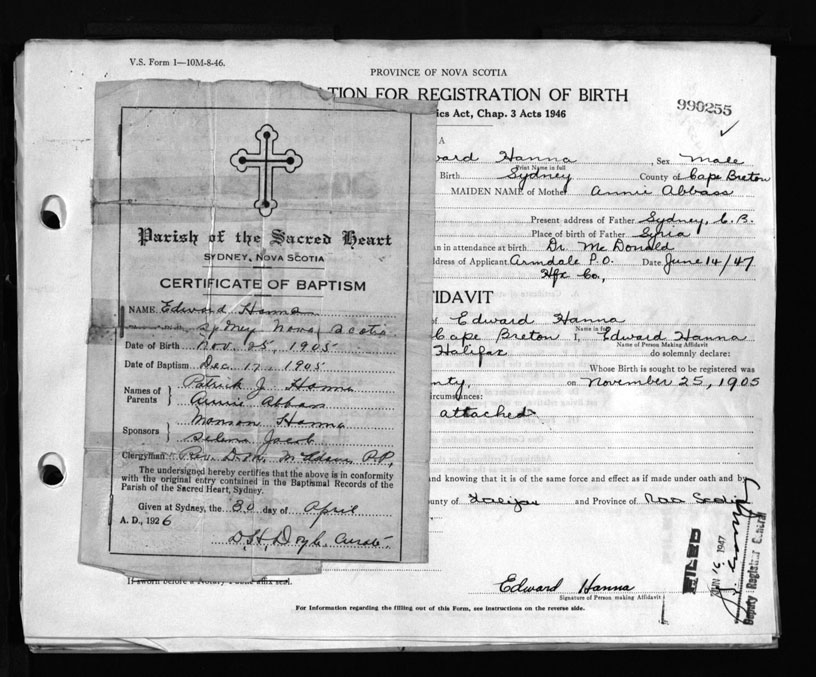 V.S. Form 1—10M-8-46.
PROVINCE OF NOVA SCOTIA
ATION FOR REGISTRATION OF BIRTH
990255
ics Act, Chap. 3 Acts 1946
A
ward Hanna, Sex Male
Print Name in full
Birth Sydney County of Cape Breton
MAIDEN NAME of Mother Annie Abbass
Present address of Father Sydney, C.B.
Place of birth of Father Syria
an in attendance at birth Dr. McDonald
dress of Applicant Armdale P.O. Date June 14/47
Hfx Co.,
FIDAVIT
of Edward Hanna
Name in full
Cape Breton I, Edward Hanna
Name of Person Making Affidavit
Halifax do solemnly declare:
Whose Birth is sought to be registered was
nty, on November 25, 1905
circumstances:
attached
and knowing that it is of the same force and effect as if made under oath and by
unty of Halifax and Province of Nova Scotia
FILED
1947
Deputy Registrar General
Edward Hanna
Signature of Person making Affidavit
If sworn before a Notary Public affix seal.
For Information regarding the filling out of this Form, see instructions on the reverse side.
Parish of the Sacred Heart
SYDNEY, NOVA SCOTIA
CERTIFICATE OF BAPTISM
NAME Edward Hanna
Sydney Nova Scotia
Date of Birth Nov. 25, 1905
Date of Baptism Dec. 17, 1905
Names of Parents Patrick J. Hanna
Annie Abbass
Sponsors Monson Hanna
Selema Jacob
Clergyman Rev. D.M. McAdam P.P.,
The undersigned hereby certifies that the above is in conformity
with the original entry contained in the Baptismal Records of the
Parish of the Sacred Heart, Sydney.
Given at Sydney, the 30 day of April
A. D., 1926
D.H. Doyle, Curate